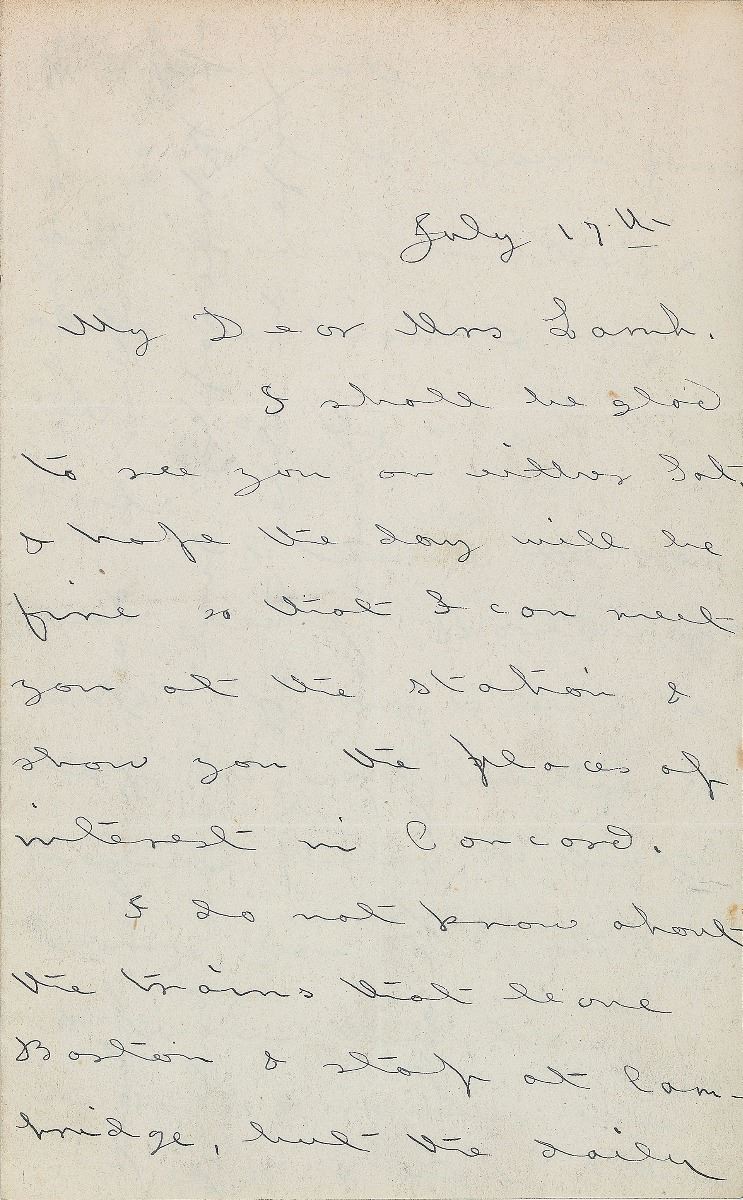 July 17th
My Dear Mrs Lamb.
I shall be glad
to see you on either Sat.
& hope the day will be
fine so that I can meet
you at the station &
show you the places of
interest in Concord.
I do not know about
the trains that leave
Boston & stop at Cam-
bridge, but the daily